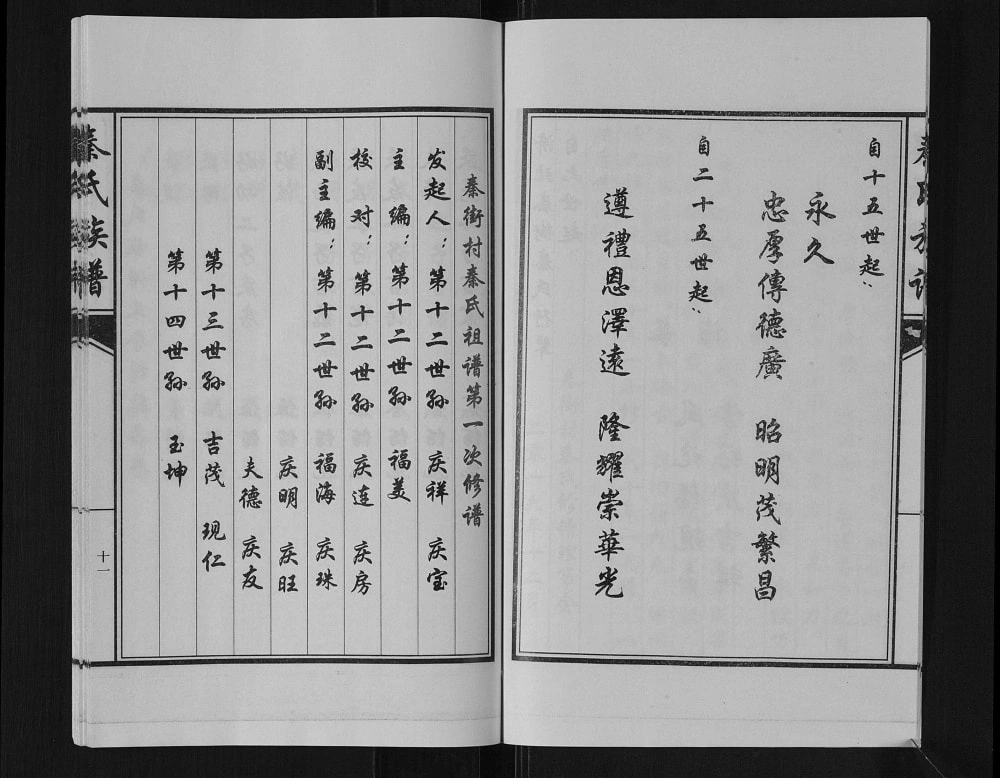 自十五世起：
永久
忠厚傳德廣 昭明茂繁昌
自二十五世起：
遵禮恩澤遠 隆耀崇華光
秦街村秦氏祖谱第一次修谱
发起人：第十二世孙 庆祥 庆宝
主编：第十二世孙 福美
校对：第十二世孙 庆连 庆房
副主编：第十二世孙 福海 庆珠
庆明 庆旺
夫德 庆友
第十三世孙 吉茂 现仁
第十四世孙 玉坤
秦氏族譜
十一